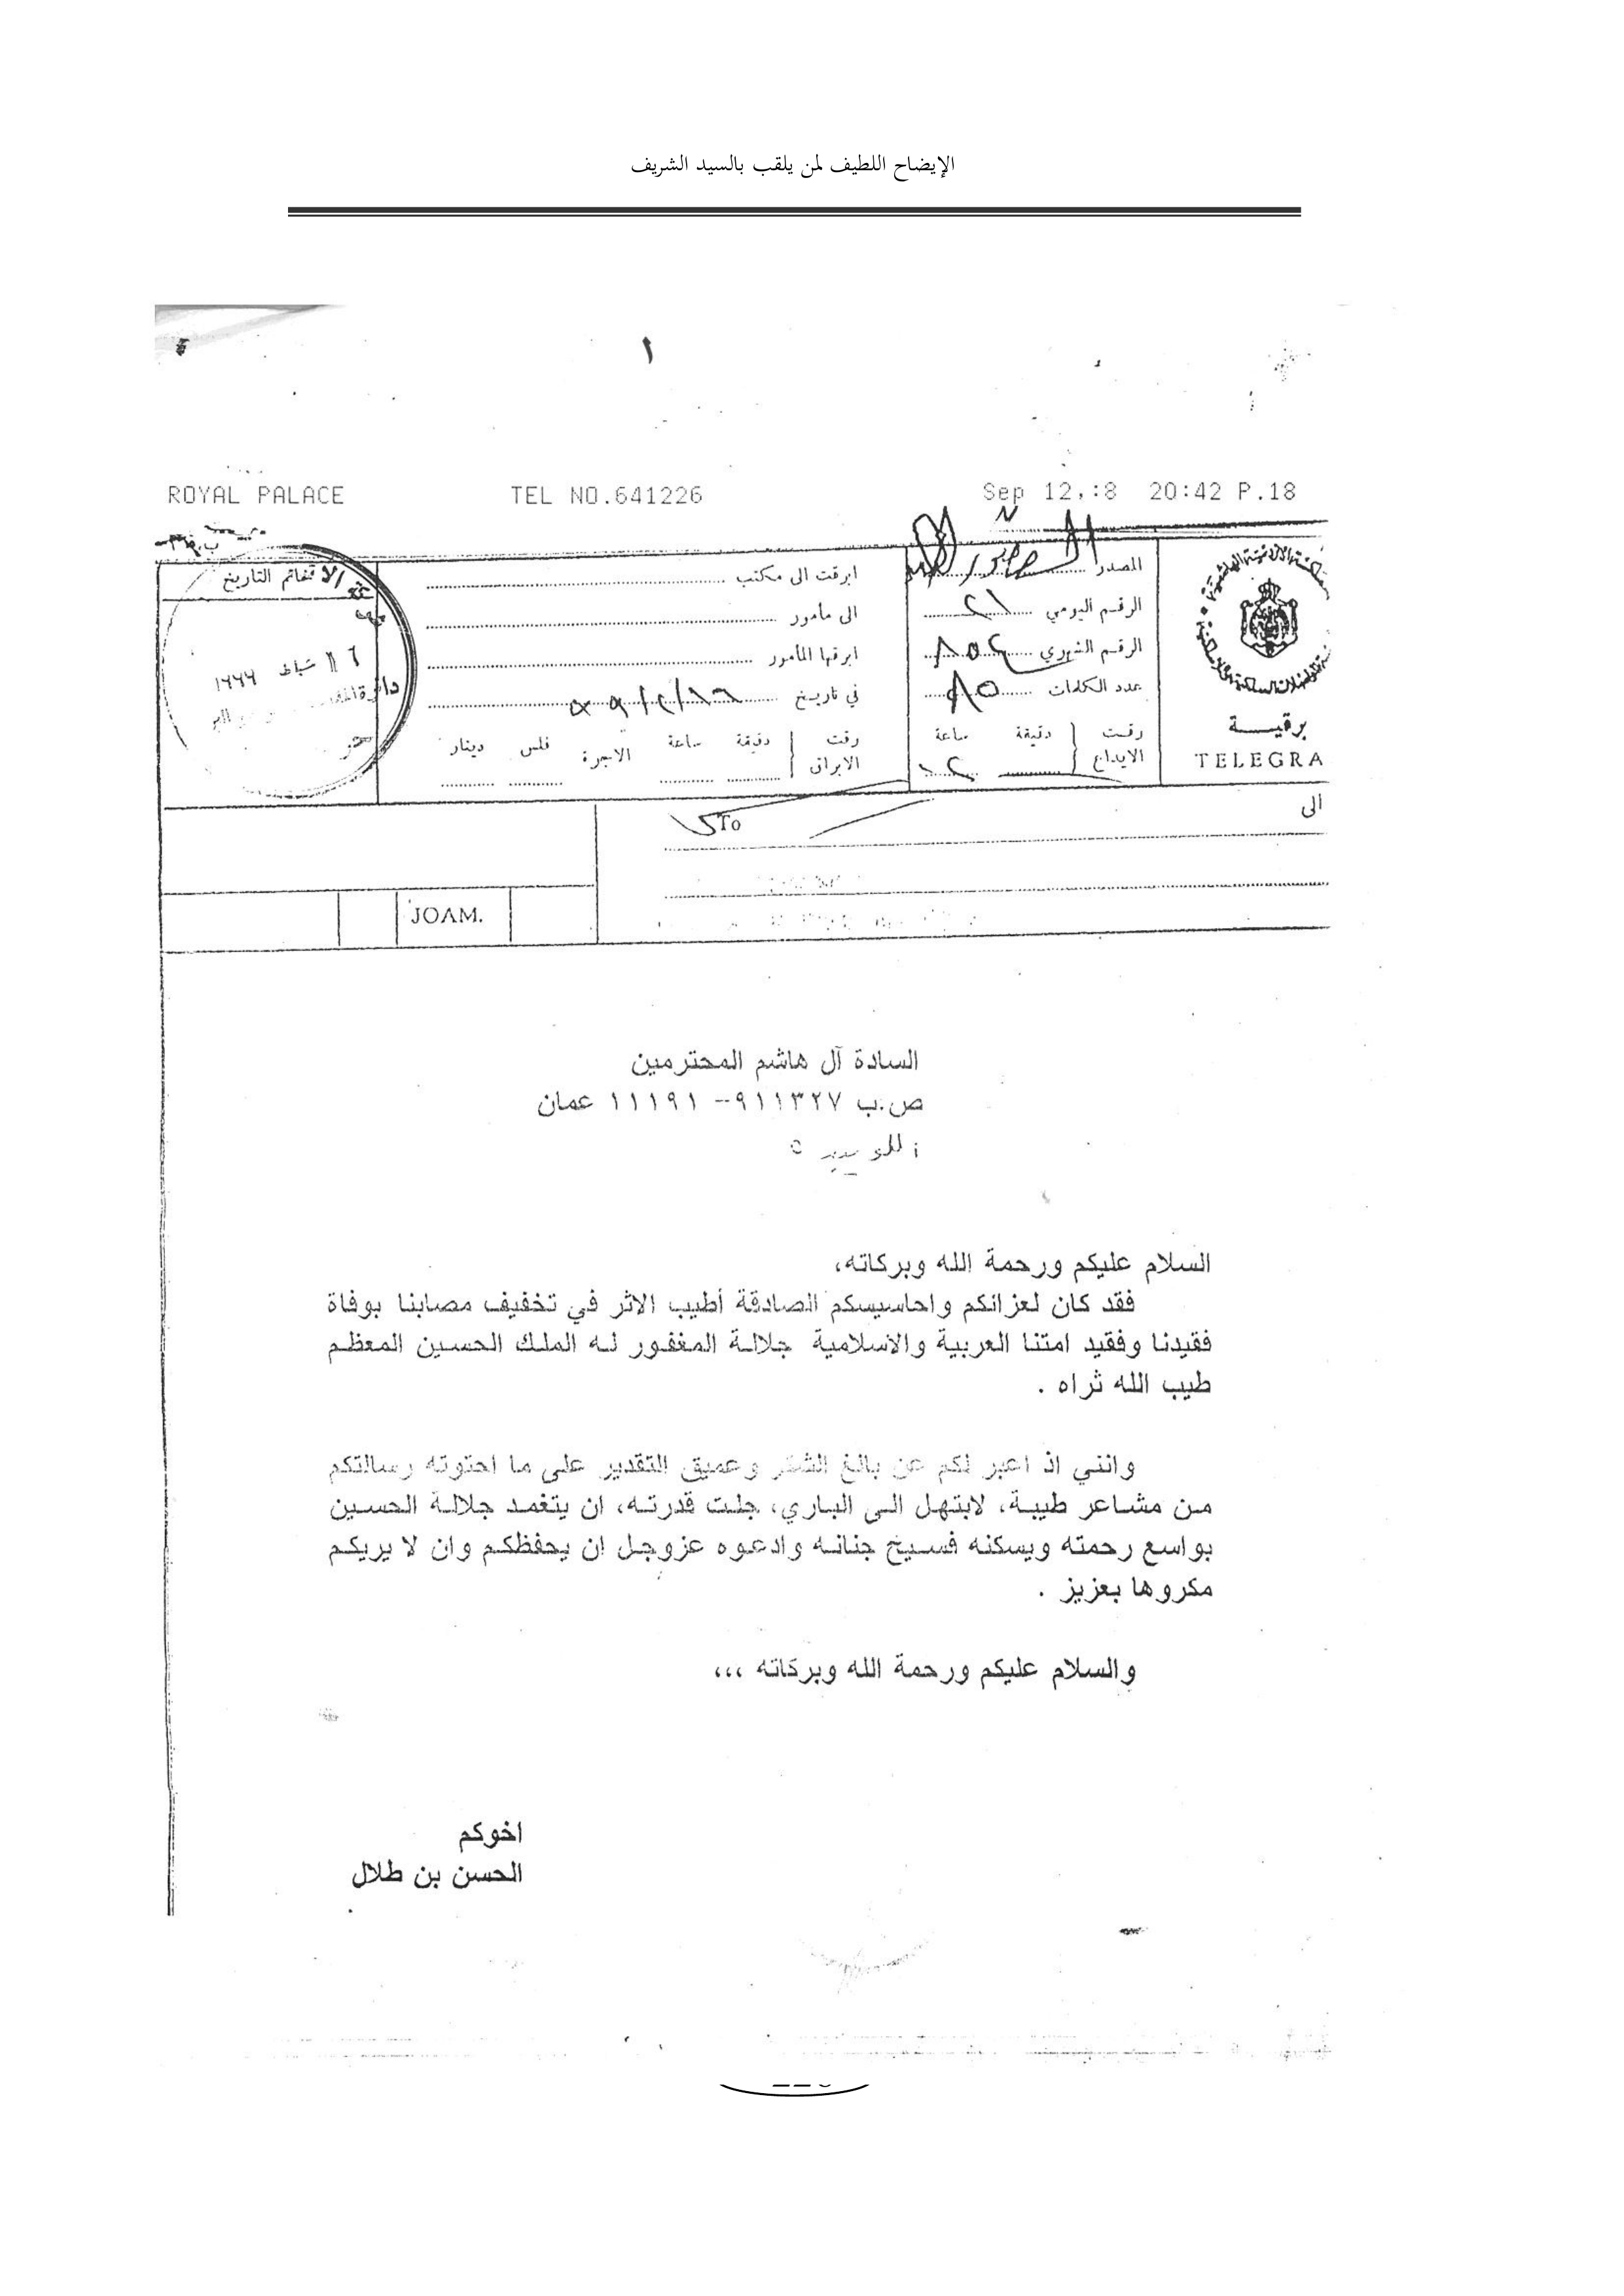 الإيضاح اللطيف لمن يلقب بالسيد الشريف
١
ROYAL PALACE TEL NO.641226 Sep 12,:8 20:42 P.18
المصدر
الرقم اليومي ٢١
الرقم الشهري ٨٥٤
عدد الكلمات ٨٥
وقت الايداع دقيقة ساعة
ابرقت الى مكتب
الى مأمور
ابرقها المأمور
في تاريخ
وقت الابراق دقيقة ساعة الاجرة فلس دينار
التاريخ
شباط
برقيـــة
TELEGRA
الى
To
JOAM.
السادة آل هاشم المحترمين
ص.ب ٩١١٣٢٧ -- ١١١٩١ عمان
السلام عليكم ورحمة الله وبركاته،
فقد كان لعزائكم واحاسيسكم الصادقة أطيب الاثر في تخفيف مصابنا بوفاة
فقيدنا وفقيد امتنا العربية والاسلامية جلالة المغفور له الملك الحسين المعظم
طيب الله ثراه .
وانني اذ اعبر لكم عن بالغ الشكر وعميق التقدير على ما احتوته رسالتكم
من مشاعر طيبة، لابتهل الى الباري، جلت قدرته، ان يتغمد جلالة الحسين
بواسع رحمته ويسكنه فسيح جنانه وادعوه عزوجل ان يحفظكم وان لا يريكم
مكروها بعزيز .
والسلام عليكم ورحمة الله وبركاته ،،،
اخوكم
الحسن بن طلال